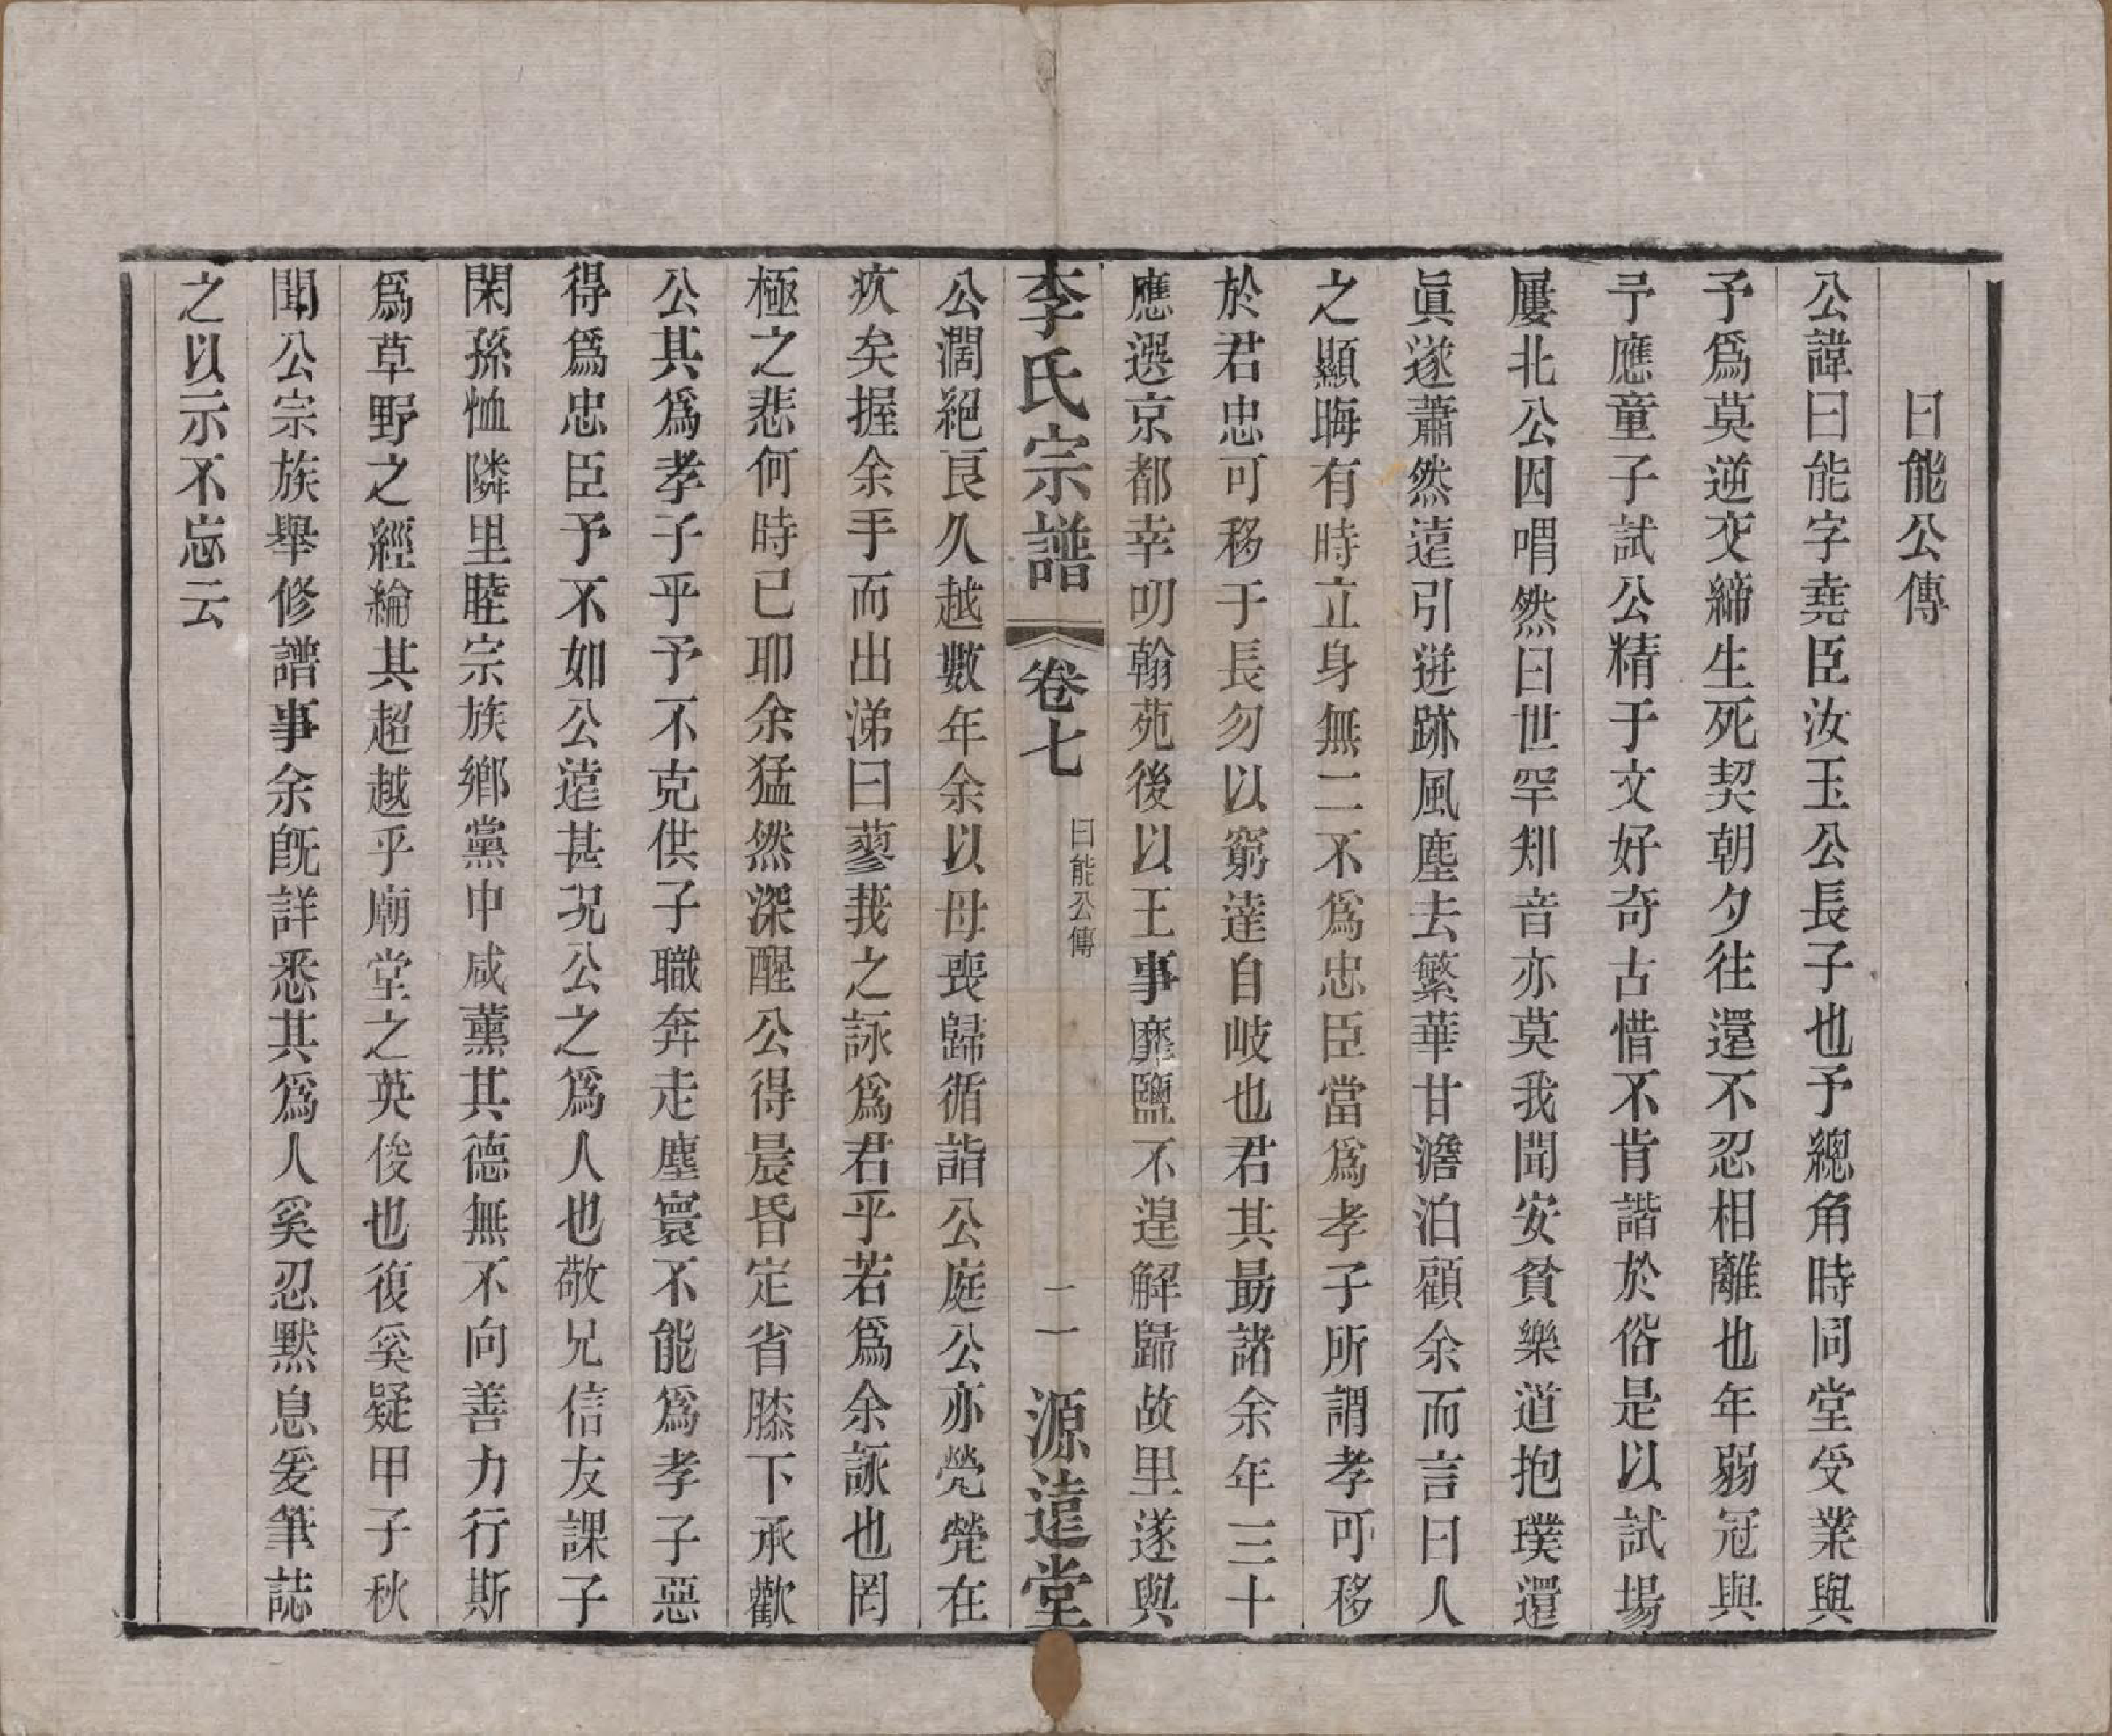 曰能公傳
公諱曰能字堯臣汝玉公長子也予總角時同堂受業與
予爲莫逆交締生死契朝夕往還不忍相離也年弱冠與
予應童子試公精于文好奇古惜不肯諧於俗是以試場
屢北公因喟然曰世罕知音亦莫我聞安貧樂道抱璞還
眞遂蕭然遠引逃跡風塵去繁華甘澹泊顧余而言曰人
之顯晦有時立身無二不爲忠臣當爲孝子所謂孝可移
於君忠可移于長勿以窮達自岐也君其勗諸余年三十
應選京都幸叨翰苑後以王事靡鹽不遑解歸故里遂與
李氏宗譜
卷七
曰能公傳
二
源遠堂
公濶絕良久越數年余以母喪歸循詣公庭公亦煢煢在
疚矣握余手而出涕曰蓼莪之詠爲君乎若爲余詠也罔
極之悲何時已耶余猛然深醒公得晨昏定省膝下承歡
公其爲孝子乎予不克供子職奔走塵寰不能爲孝子惡
得爲忠臣予不如公遠甚况公之爲人也敬兄信友課子
閑孫恤隣里睦宗族鄉黨中咸薰其德無不向善力行斯
爲草野之經綸其超越乎廟堂之英俊也復奚疑甲子秋
聞公宗族舉修譜事余旣詳悉其爲人奚忍默息爰筆誌
之以示不忘云